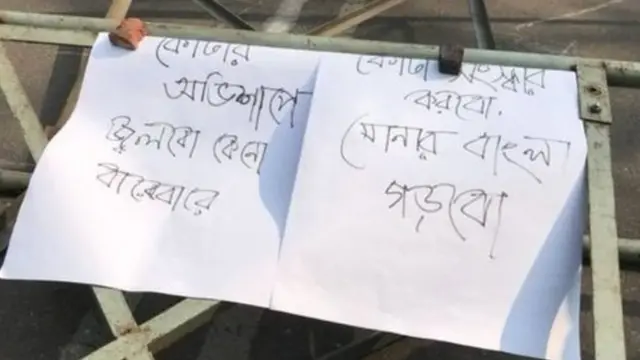 কোটার
অভিশাপে
জ্বলবো কেনো
বারেবারে
কোটা সংস্কার
করবো.
সোনার বাংলা
গড়বো